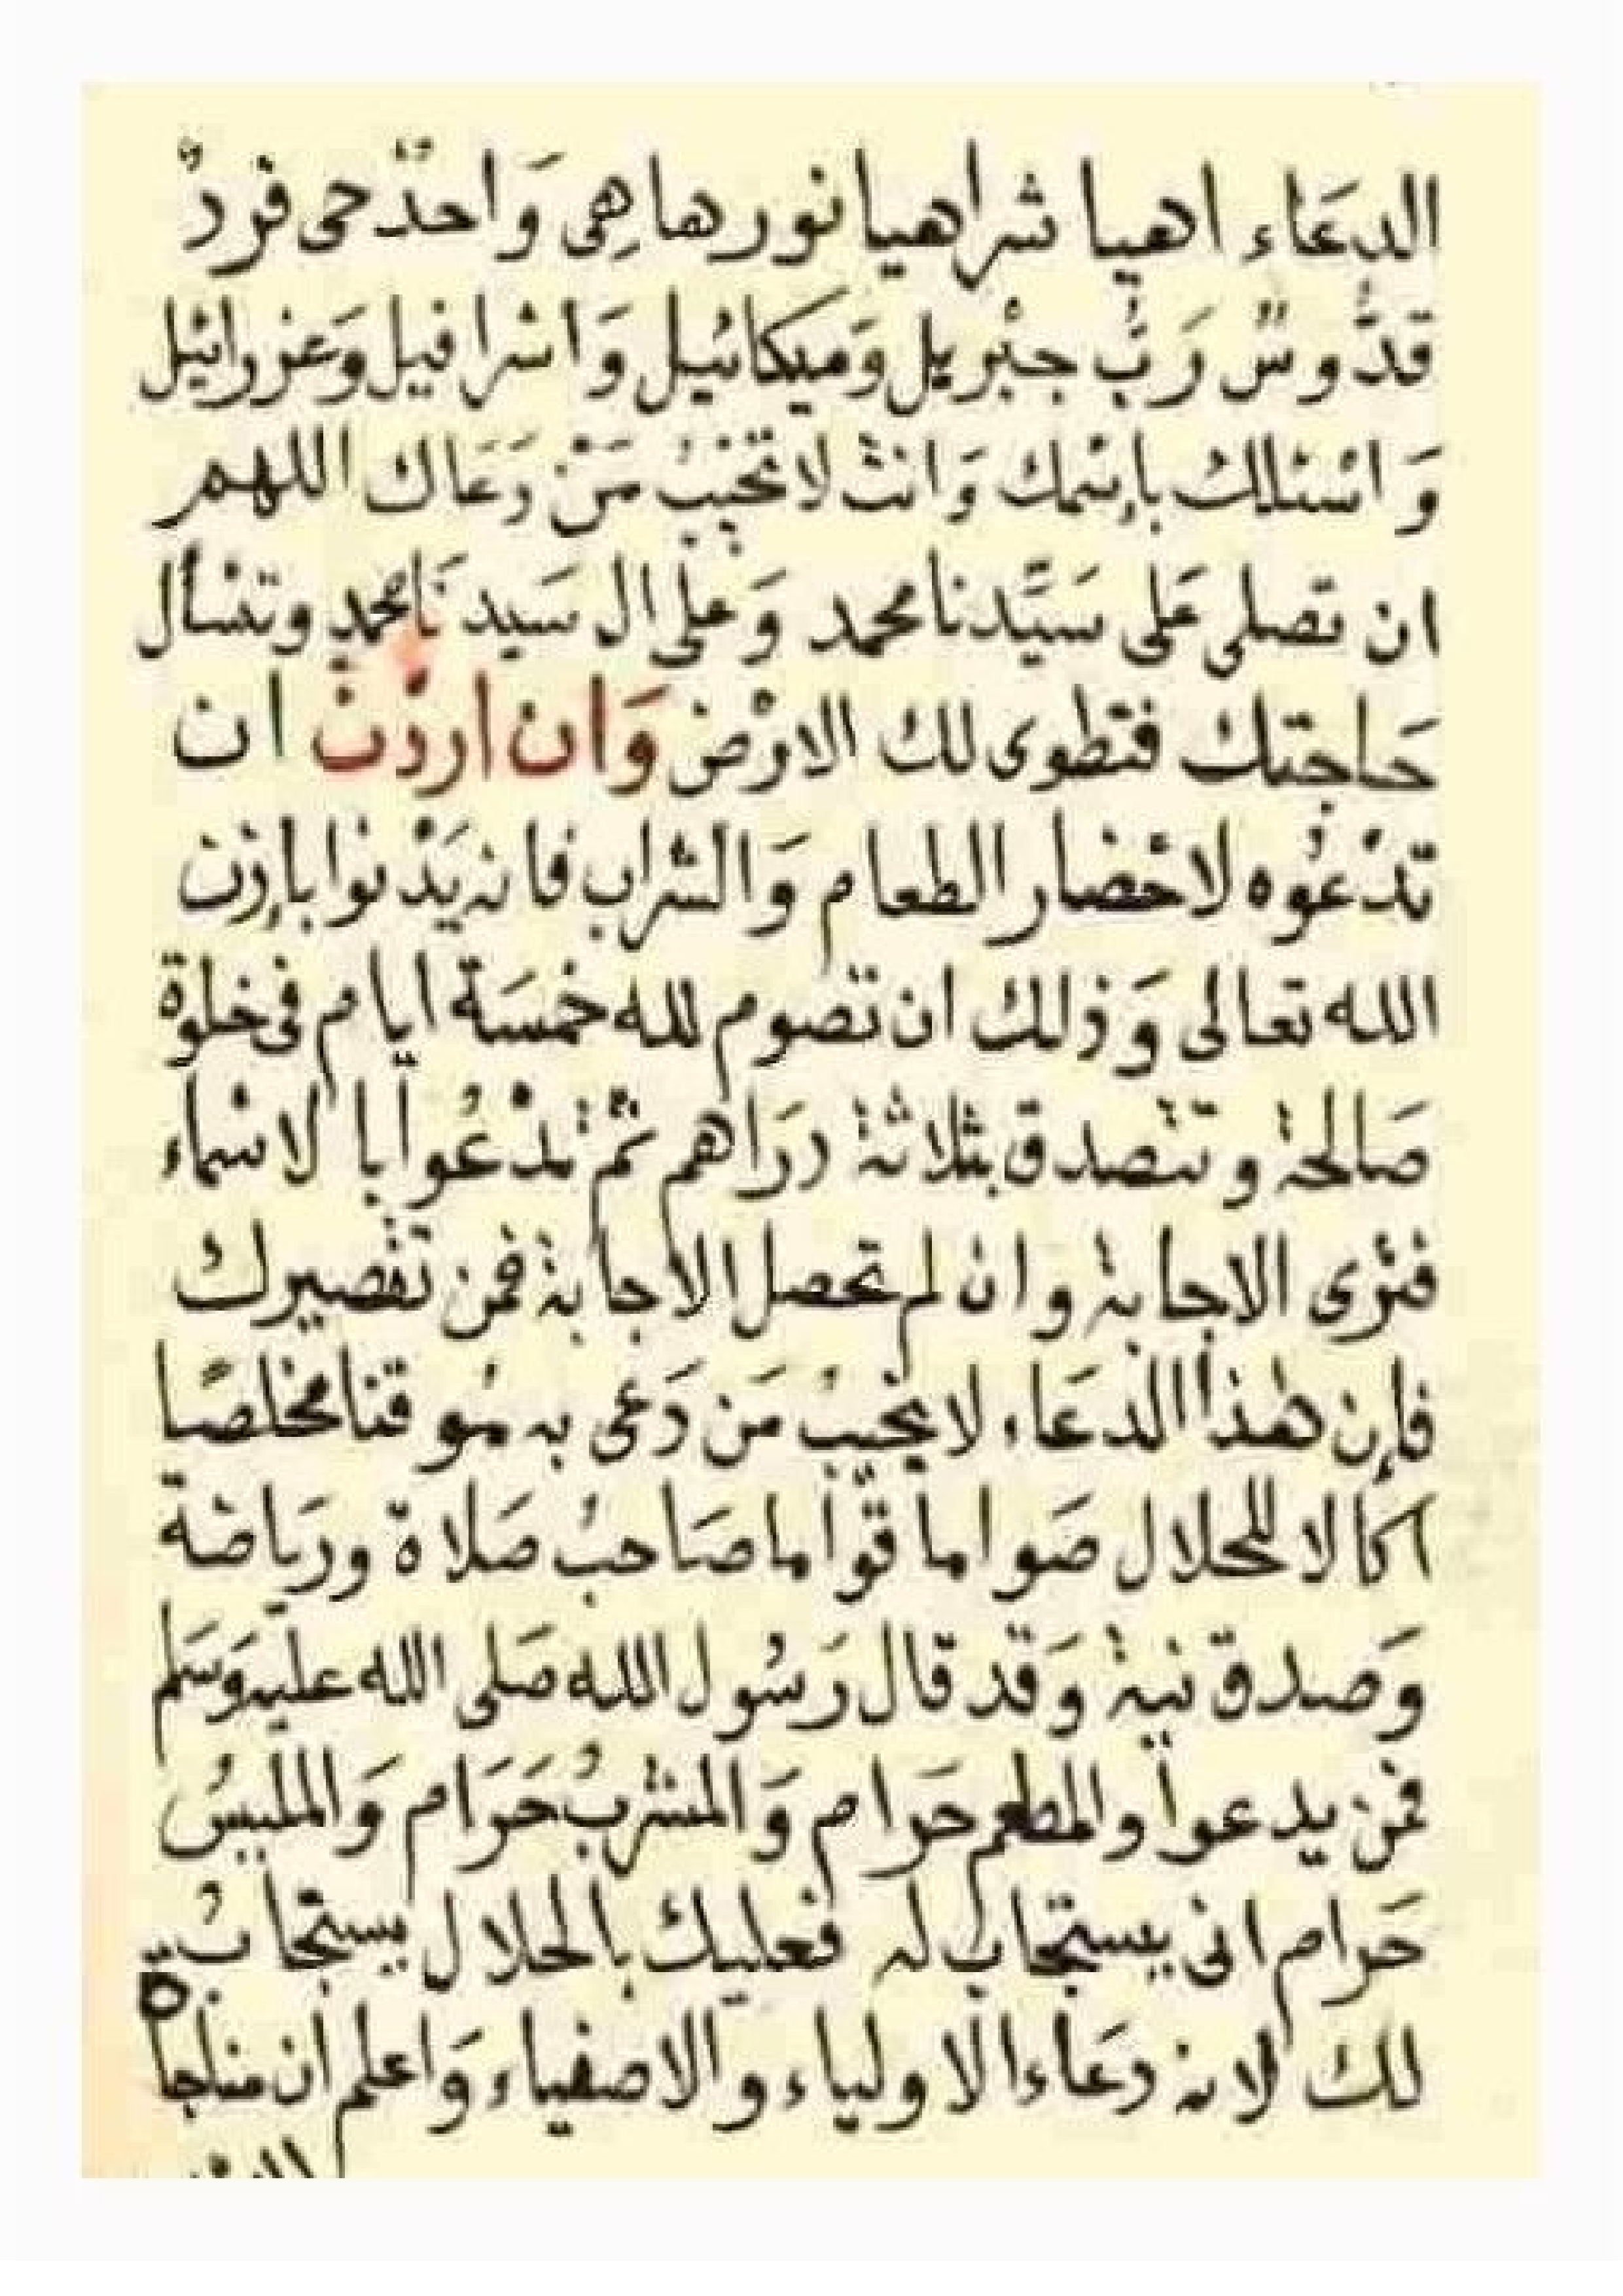 الدعَاء اهيا شراهيا نورها هِى وَاحدٌ حى فردٌ
قدُّوسٌ رَبُّ جبْريل وَميكائيل وَاسْرافيل وَعزرائيل
وَاسْئلكُ بإسْمك وَانتْ لا تخيْبُ مَنْ دَعَاك اللهم
ان تصلى عَلى سَيّدنا محمد وَعلى ال سَيدنَا محمد وتسْأل
حَاجتك فتطوى لك الارْض وَان اردْتَ ان
تدْعُوه لاحْضار الطعام وَالشراب فانه يَدْنوا بإذن
الله تعالى وَذلك ان تصْوم لله خمسَة ايام فى خلوة
صَالحة وتتصدق بثلاثة درَاهم ثم تدْعُوا بالاسْماء
فترْى الاجابة وان لم تحصل الاجابة فمن تقصيرك
فإن هذا الدعَاء لا يخيبُ مَن دَعى به مُوقنا مخلصًا
اكالا للحلال صَواما قوّاما صَاحبُ صَلاة وريَاضة
وَصدق نية وَقد قال رَسُول الله صَلى الله عليه وَسَلم
فمن يدعوا والمطعم حرَام وَالمشربُ حَرَام وَالملبسُ
حَرام انى يستجاب له فعليك بالحلال يستجابُ
لك لانه دعَاء الاولياء والاصفياء وَاعلم ان مناجاة